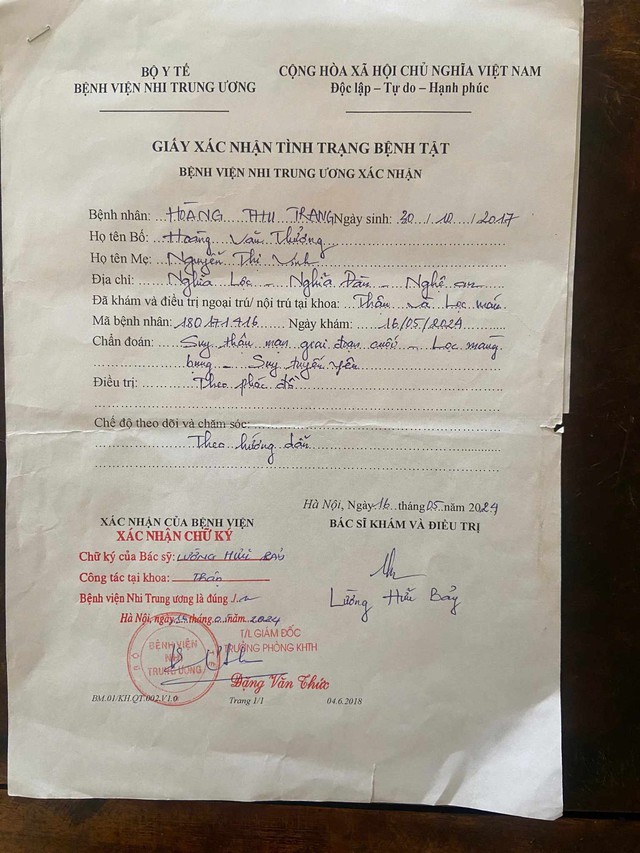 BỘ Y TẾ
BỆNH VIỆN NHI TRUNG ƯƠNG
CỘNG HÒA XÃ HỘI CHỦ NGHĨA VIỆT NAM
Độc lập – Tự do – Hạnh phúc
GIẤY XÁC NHẬN TÌNH TRẠNG BỆNH TẬT
BỆNH VIỆN NHI TRUNG ƯƠNG XÁC NHẬN
Bệnh nhân: HOÀNG THU TRANG Ngày sinh: 30/10/2017
Họ tên Bố: Hoàng Văn Thưởng
Họ tên Mẹ: Nguyễn Thị Vinh
Địa chỉ: Nghĩa Lộc – Nghĩa Đàn – Nghệ An
Đã khám và điều trị ngoại trú/ nội trú tại khoa: Thận và Lọc máu
Mã bệnh nhân: 180171416 Ngày khám: 16/05/2024
Chẩn đoán: Suy thận mạn giai đoạn cuối – Lọc màng
bụng – Suy tuyến yên
Điều trị: Theo phác đồ
Chế độ theo dõi và chăm sóc:
Theo hướng dẫn
Hà Nội, Ngày 16 tháng 05 năm 2024
XÁC NHẬN CỦA BỆNH VIỆN
BÁC SĨ KHÁM VÀ ĐIỀU TRỊ
XÁC NHẬN CHỮ KÝ
Chữ ký của Bác sỹ: LƯƠNG HỮU BẢY
Công tác tại khoa: Thận
Bệnh viện Nhi Trung ương là đúng./.
Lương Hữu Bảy
Hà Nội, ngày tháng năm 2024
T/L GIÁM ĐỐC
TRƯỞNG PHÒNG KHTH
BỆNH VIỆN
NHI
TRUNG ƯƠNG
Đặng Văn Thức
BM.01/KH.QT.002.V1.0
Trang 1/1
04.6.2018